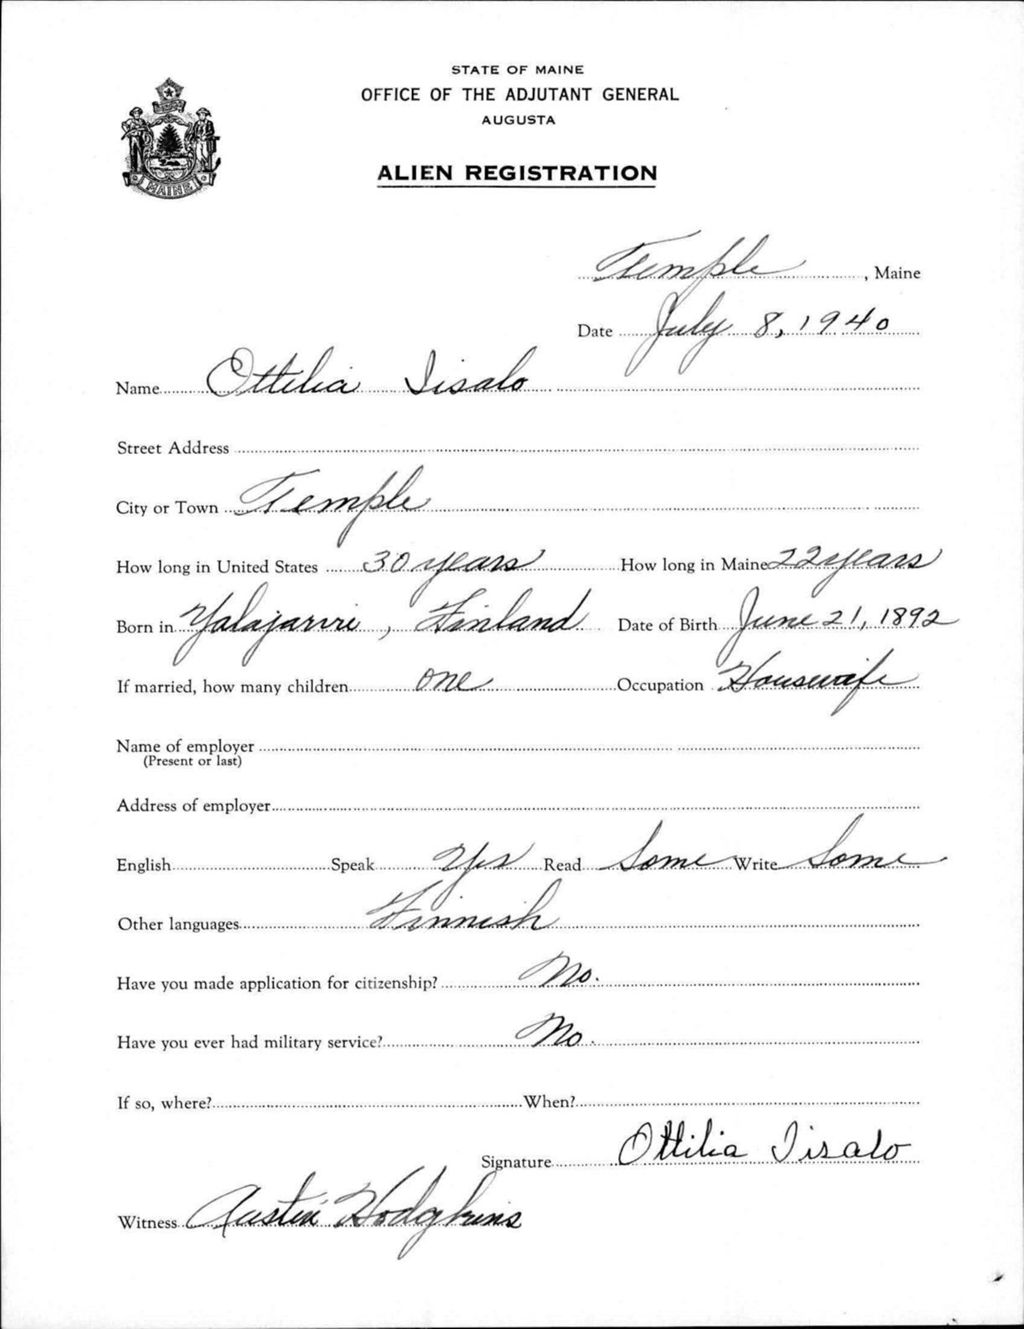 STATE OF MAINE
OFFICE OF THE ADJUTANT GENERAL
AUGUSTA
ALIEN REGISTRATION
MAINE
Temple, Maine
Date July 8, 1940
Name Ottilia Iisalo
Street Address
City or Town Temple
How long in United States 30 years How long in Maine 22 years
Born in Yalajarvi, Finland Date of Birth June 21, 1892
If married, how many children one Occupation Housewife
Name of employer
(Present or last)
Address of employer
English Speak Yes Read Some Write Some
Other languages Finnish
Have you made application for citizenship? No.
Have you ever had military service? No.
If so, where? When?
Signature Ottilia Iisalo
Witness Austin Hodgkins